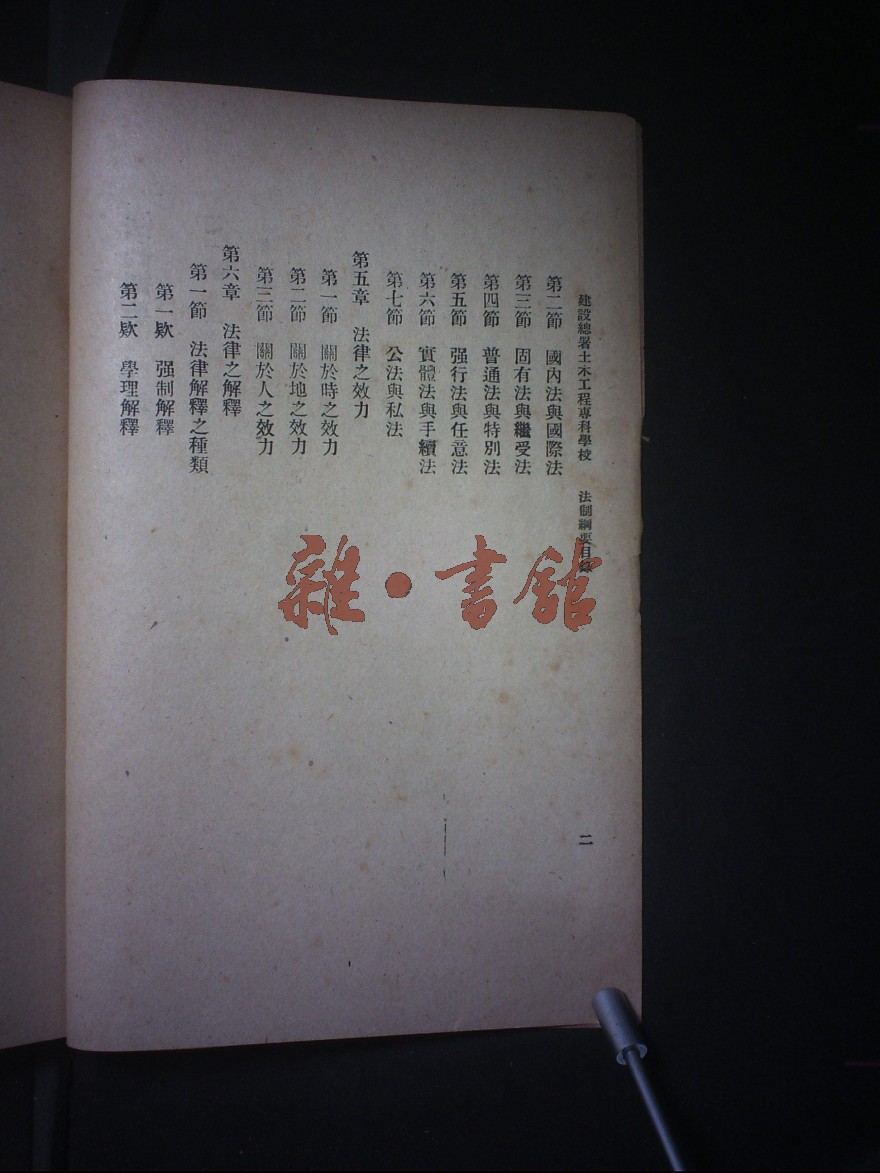 建設總署土木工程專科學校　法制綱要目錄　二
第二節　國內法與國際法
第三節　固有法與繼受法
第四節　普通法與特別法
第五節　强行法與任意法
第六節　實體法與手續法
第七節　公法與私法
第五章　法律之效力
第一節　關於時之效力
第二節　關於地之效力
第三節　關於人之效力
第六章　法律之解釋
第一節　法律解釋之種類
第一欵　强制解釋
第二欵　學理解釋
雜·書館